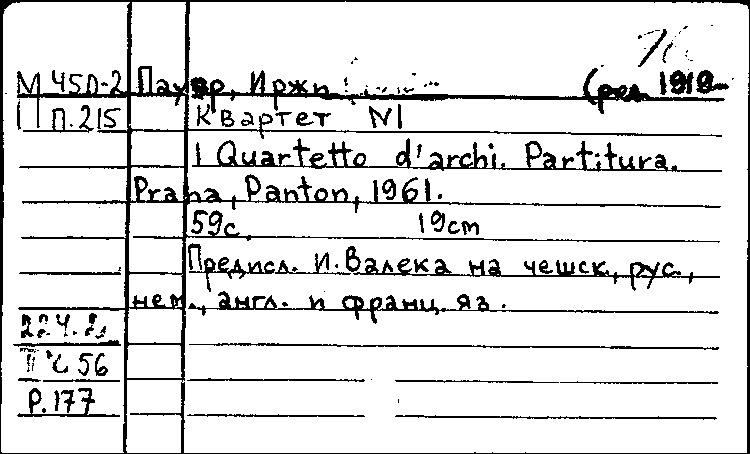 М 450-2 Пауэр, Иржи (род. 1919
П.215 Квартет N1
I Quartetto d'archi. Partitura.
Praha, Panton, 1961.
59с. 19cm
Предисл. И. Валека на чешск., рус.,
нем., англ. и франц. яз.
56
Р.177